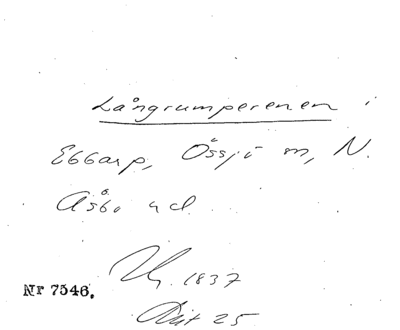 Långrumperenen i
Ebbarp, Össjö sn, N.
Åsbo hd.
1837
Nr 7546.
25